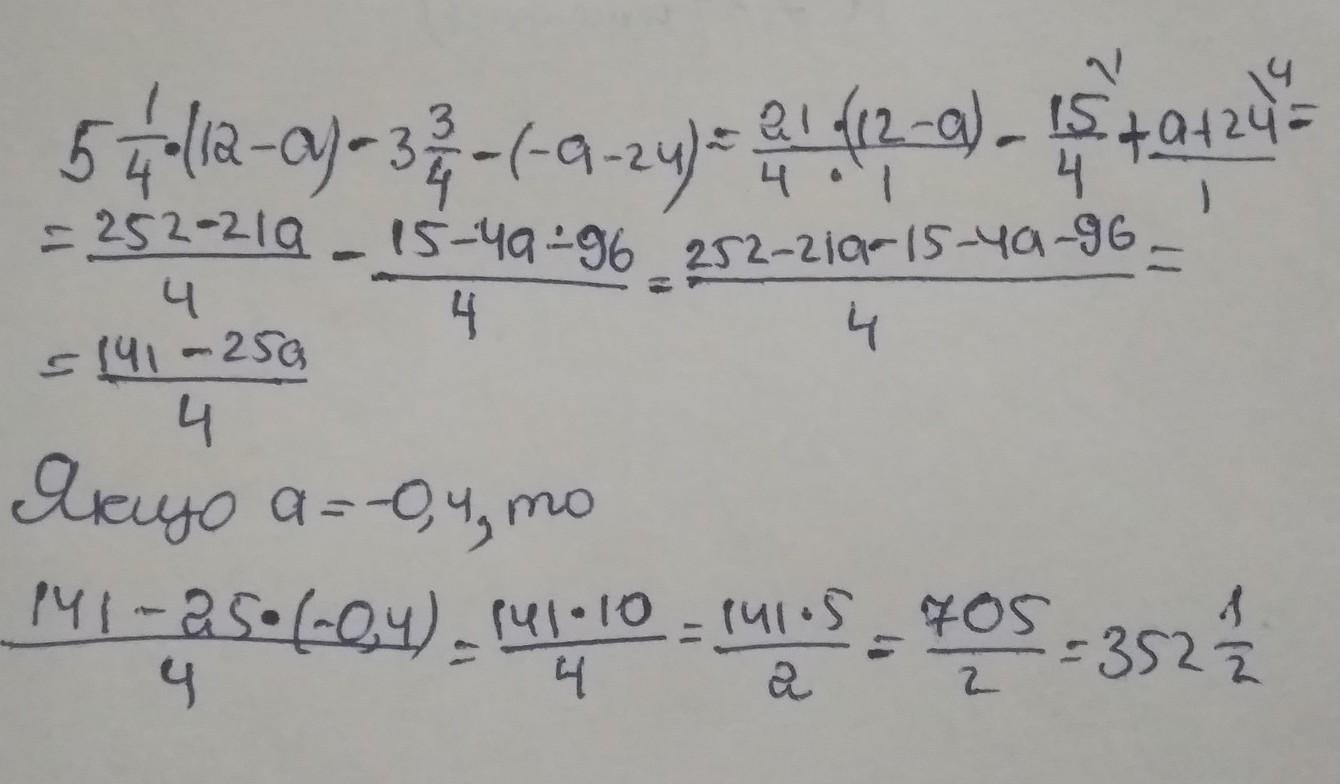 5 1/4 · (12 - a) - 3 3/4 - (-a - 24) = 21 · (12 - a) / 4 · 1 - 15\1 / 4 + a + 24\4 / 1 =
= 252 - 21a / 4 - 15 - 4a - 96 / 4 = 252 - 21a - 15 - 4a - 96 / 4 =
= 141 - 25a / 4
Якщо a = -0,4, то
141 - 25 · (-0,4) / 4 = 141 · 10 / 4 = 141 · 5 / 2 = 705 / 2 = 352 1/2